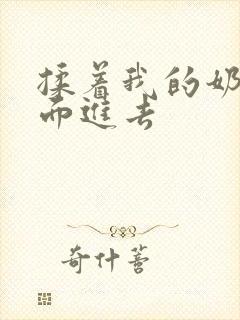 揉着我的奶
而進去
奇什营